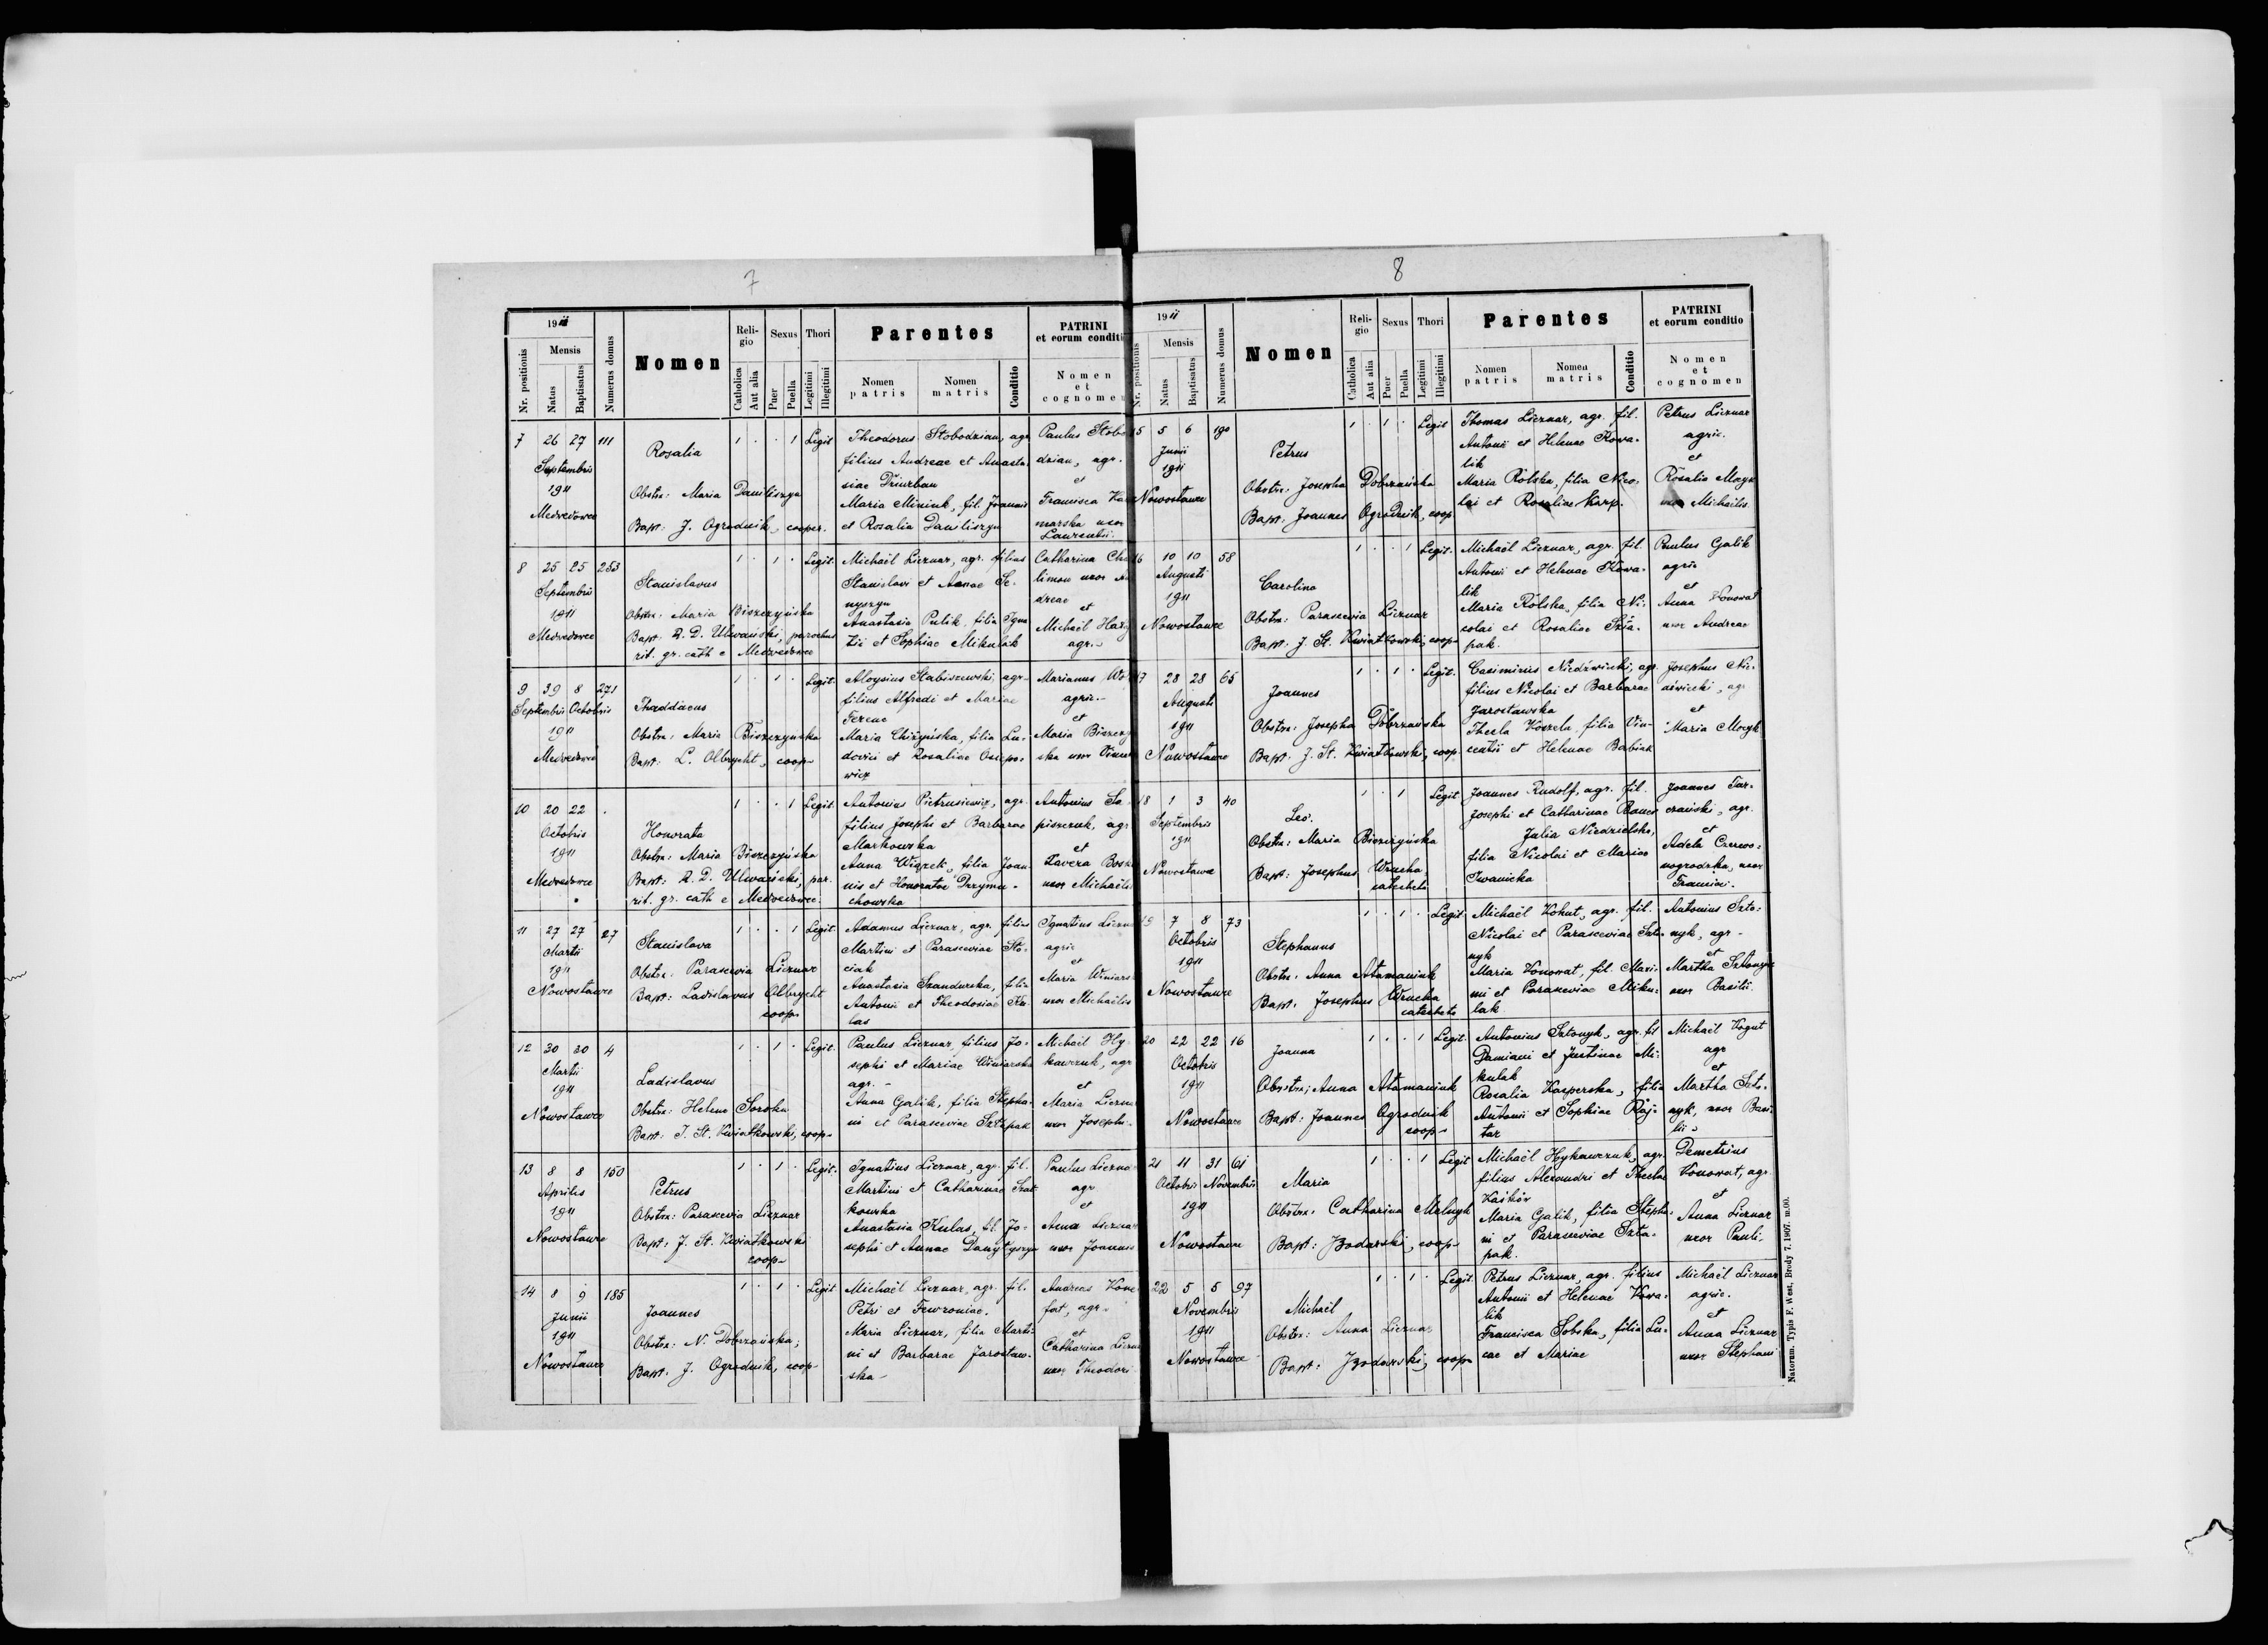 7
1911
Nr. positionis
Mensis
Natus
Baptisatus
Numerus domus
Nomen
Religio
Catholica
Aut alia
Sexus
Puer
Puella
Thori
Legitimi
Illegitimi
Parentes
Nomen patris
Nomen matris
Conditio
PATRINI
et eorum conditi
Nomen
et
cognomen
7 26 27 111
Septembris
1911
Medwedowce
Rosalia
Obstrx: Maria Daniliszyn
Bapt: J. Ogrodnik, cooper.
1 . . 1 Legit
Theodorus Stobodzian, agr.
filius Andreae et Anasta-
siae Dziurban
Maria Miniuk, fil. Joannis
et Rosalia Daniliszyn
Paulus Stobo
dzian, agr.
et
Francisca
marska uxor
Laurentii.
8 25 25 253
Septembris
1911
Medwedowce
Stanislaus
Obstrx: Maria Biszczyńska
Bapt: R. D. Ulwański, parochus
rit. gr. cath e Medwedowce
1 . 1 . Legit.
Michaël Licznar, agr. filius
Stanislavi et Annae Se-
nyszyn
Anastasia Pulik, filia Igna
tii et Sophiae Mikulak
Catharina
limon uxor
dreae
et
Michaël
agr.
9 39 8 271
Septembris Octobris
1911
Medwedowce
Thaddaeus
Obstrx: Maria Biszczyńska
Bapt: L. Olbrycht, coop
1 . 1 . Legit.
Aloysius Stabiszewski, agr
filius Alfredi et Mariae
Ferenc
Maria Chiżyńska, filia Lu-
dovici et Rosaliae Osipo-
wicz
Marianus
agric.
et
Maria Biszczy
ska uxor
10 20 22 .
Octobris
1911
Medwedowce
Honorata
Obstrx: Maria Biszczyńska
Bapt: R. D. Ulwański, par.
rit. gr. cath e Medwedowce.
1 . . 1 Legit.
Antonius Pietrusiewicz, agr.
filius Josephi et Barbarae
Markowska
Anna Wiązek, filia Joan-
nis et Honoratae Przymu-
chowska
Antonius
piszczuk, agr
et
Xavera
uxor Michaëlis
11 27 27 27
Martii
1911
Nowostawce
Stanislava
Obstrx: Parascevia Licznar
Bapt: Ladislaus Olbrycht
coop
1 . . 1 Legit
Adamus Licznar, agr. filius
Martini et Parasceviae Sto-
ciak
Anastasia Szandurska, filia
Antonii et Theodosiae Ku
las
Ignatius Liczna
agric
et
Maria Winiars
uxor Michaëlis
12 30 30 4
Martii
1911
Nowostawce
Ladislaus
Obstrx: Helena Soroka
Bapt: J. St. Kwiatkowski, coop
1 . 1 . Legit.
Paulus Licznar, filius Jo-
sephi et Mariae Winiarska
agr.
Anna Galik, filia Stepha-
ni et Parasceviae Sztopak
Michaël Hy-
kawczuk, agr
et
Maria Liczna
uxor Josephi
13 8 8 150
Aprilis
1911
Nowostawce
Petrus
Obstrx: Parascevia Licznar
Bapt: J. St. Kwiatkowski
coop
1 . 1 . Legit.
Ignatius Licznar, agr. fil.
Martini et Catharinae Szat
kowska
Anastasia Kulas, fil. Jo-
sephi et Annae Danylyszyn
Paulus Liczna
agr
et
Anna Licznar
uxor Joannis
14 8 9 185
Junii
1911
Nowostawce
Joannes
Obstrx: N. Dobrzańska;
Bapt: J. Ogrodnik, coop
1 . 1 . Legit
Michaël Licznar, agr. fil.
Petri et Fewroniae.
Maria Licznar, filia Marti-
ni et Barbarae Jarosław-
ska
Andreas
fat, agr.
et
Catharina Liczna
uxor Theodori
8
1911
Nr. positionis
Mensis
Natus
Baptisatus
Numerus domus
Nomen
Religio
Catholica
Aut alia
Sexus
Puer
Puella
Thori
Legitimi
Illegitimi
Parentes
Nomen patris
Nomen matris
Conditio
PATRINI
et eorum conditio
Nomen
et
cognomen
15 5 6 190
Junii
1911
Nowostawce
Petrus
Obstrx: Josepha Dobrzańska
Bapt: Joannes Ogrodnik, coop
1 . 1 . Legit
Thomas Licznar, agr. fil.
Antonii et Helenae Kowa-
lik
Maria Rólska, filia Nico-
lai et Rosaliae Karp.
Petrus Licznar
agric.
et
Rosalia
uxor Michaëlis.
16 10 10 58
Augusti
1911
Nowostawce
Carolina
Obstrx: Parascevia Licznar
Bapt: J. St. Kwiatkowski, coop
1 . . 1 Legit.
Michaël Licznar, agr. fil.
Antonii et Helenae Kowa-
lik
Maria Rólska, filia Ni-
colai et Rosaliae Szta-
pak.
Paulus Galik
agric
et
Anna Konowat
uxor Andreae
17 28 28 65
Augusti
1911
Nowostawce
Joannes
Obstrx: Josepha Dobrzańska
Bapt: J. St. Kwiatkowski, coop.
1 . 1 . Legit.
Casimirus Niedźwiecki, agr.
filius Nicolai et Barbarae
Jarosławska
Thecla Koszela, filia Vin-
centii et Helenae Babiak
Josephus Nie-
dźwiecki, agr
et
Maria
18 1 3 40
Septembris
1911
Nowostawce
Leo.
Obstrx: Maria Biszczyńska
Bapt: Josephus Wrucha
catecheta
1 . 1 Legit
Joannes Rudolf, agr. fil.
Josephi et Catharinae
Julia Niedzielska,
filia Nicolai et Mariae
Iwanicka
Joannes Tar-
czański, agr.
et
Adela Czerwo-
nogrodzka, uxor
Francisci.
19 7 8 73
Octobris
1911
Nowostawce
Stephanus
Obstrx: Anna Atamaniuk
Bapt: Josephus Wrucha
catecheta
1 . 1 . Legit
Michaël Kohut, agr. fil.
Nicolai et Parasceviae Szto-
nyk
Maria Konowat, fil. Maxi-
mi et Parasceviae Miku-
lak
Antonius Szto-
nyk, agr
et
Martha Sztonyk
uxor Basilii.
20 22 22 16
Octobris
1911
Nowostawce
Joanna
Obstrx: Anna Atamaniuk
Bapt: Joannes Ogrodnik
coop
1 . . 1 Legit.
Antonius Sztonyk, agr. fil
Damiani et Justinae Mi-
kulak
Rosalia Kasperska, filia
Antonii et Sophiae Raj-
tar
Michaël Kogut
agr
et
Martha Szto-
nyk, uxor Basi-
lii
21 11 31 61
Octobris Novembris
1911
Nowostawce
Maria
Obstrx: Catharina Melnyk
Bapt: Jzodarski, coop
1 . . 1 Legit
Michaël Hykawczuk, agr.
filius Alexandri et Theclae
Kaśków
Maria Galik, filia Stepha-
ni et Parasceviae Szta-
pak.
Demetrius
Konowat, agr.
et
Anna Licznar
uxor Pauli.
22 5 5 97
Novembris
1911
Nowostawce
Michaël
Obstrx: Anna Licznar
Bapt: Jzodarski, coop
1 . 1 . Legit.
Petrus Licznar, agr. filius
Antonii et Helenae Kowa-
lik
Francisca Sobska, filia Lu-
cae et Mariae
Michaël Licznar
agric.
et
Anna Licznar
uxor Stephani
Natorum. Typis F. West, Brody 7.1907. m.00.